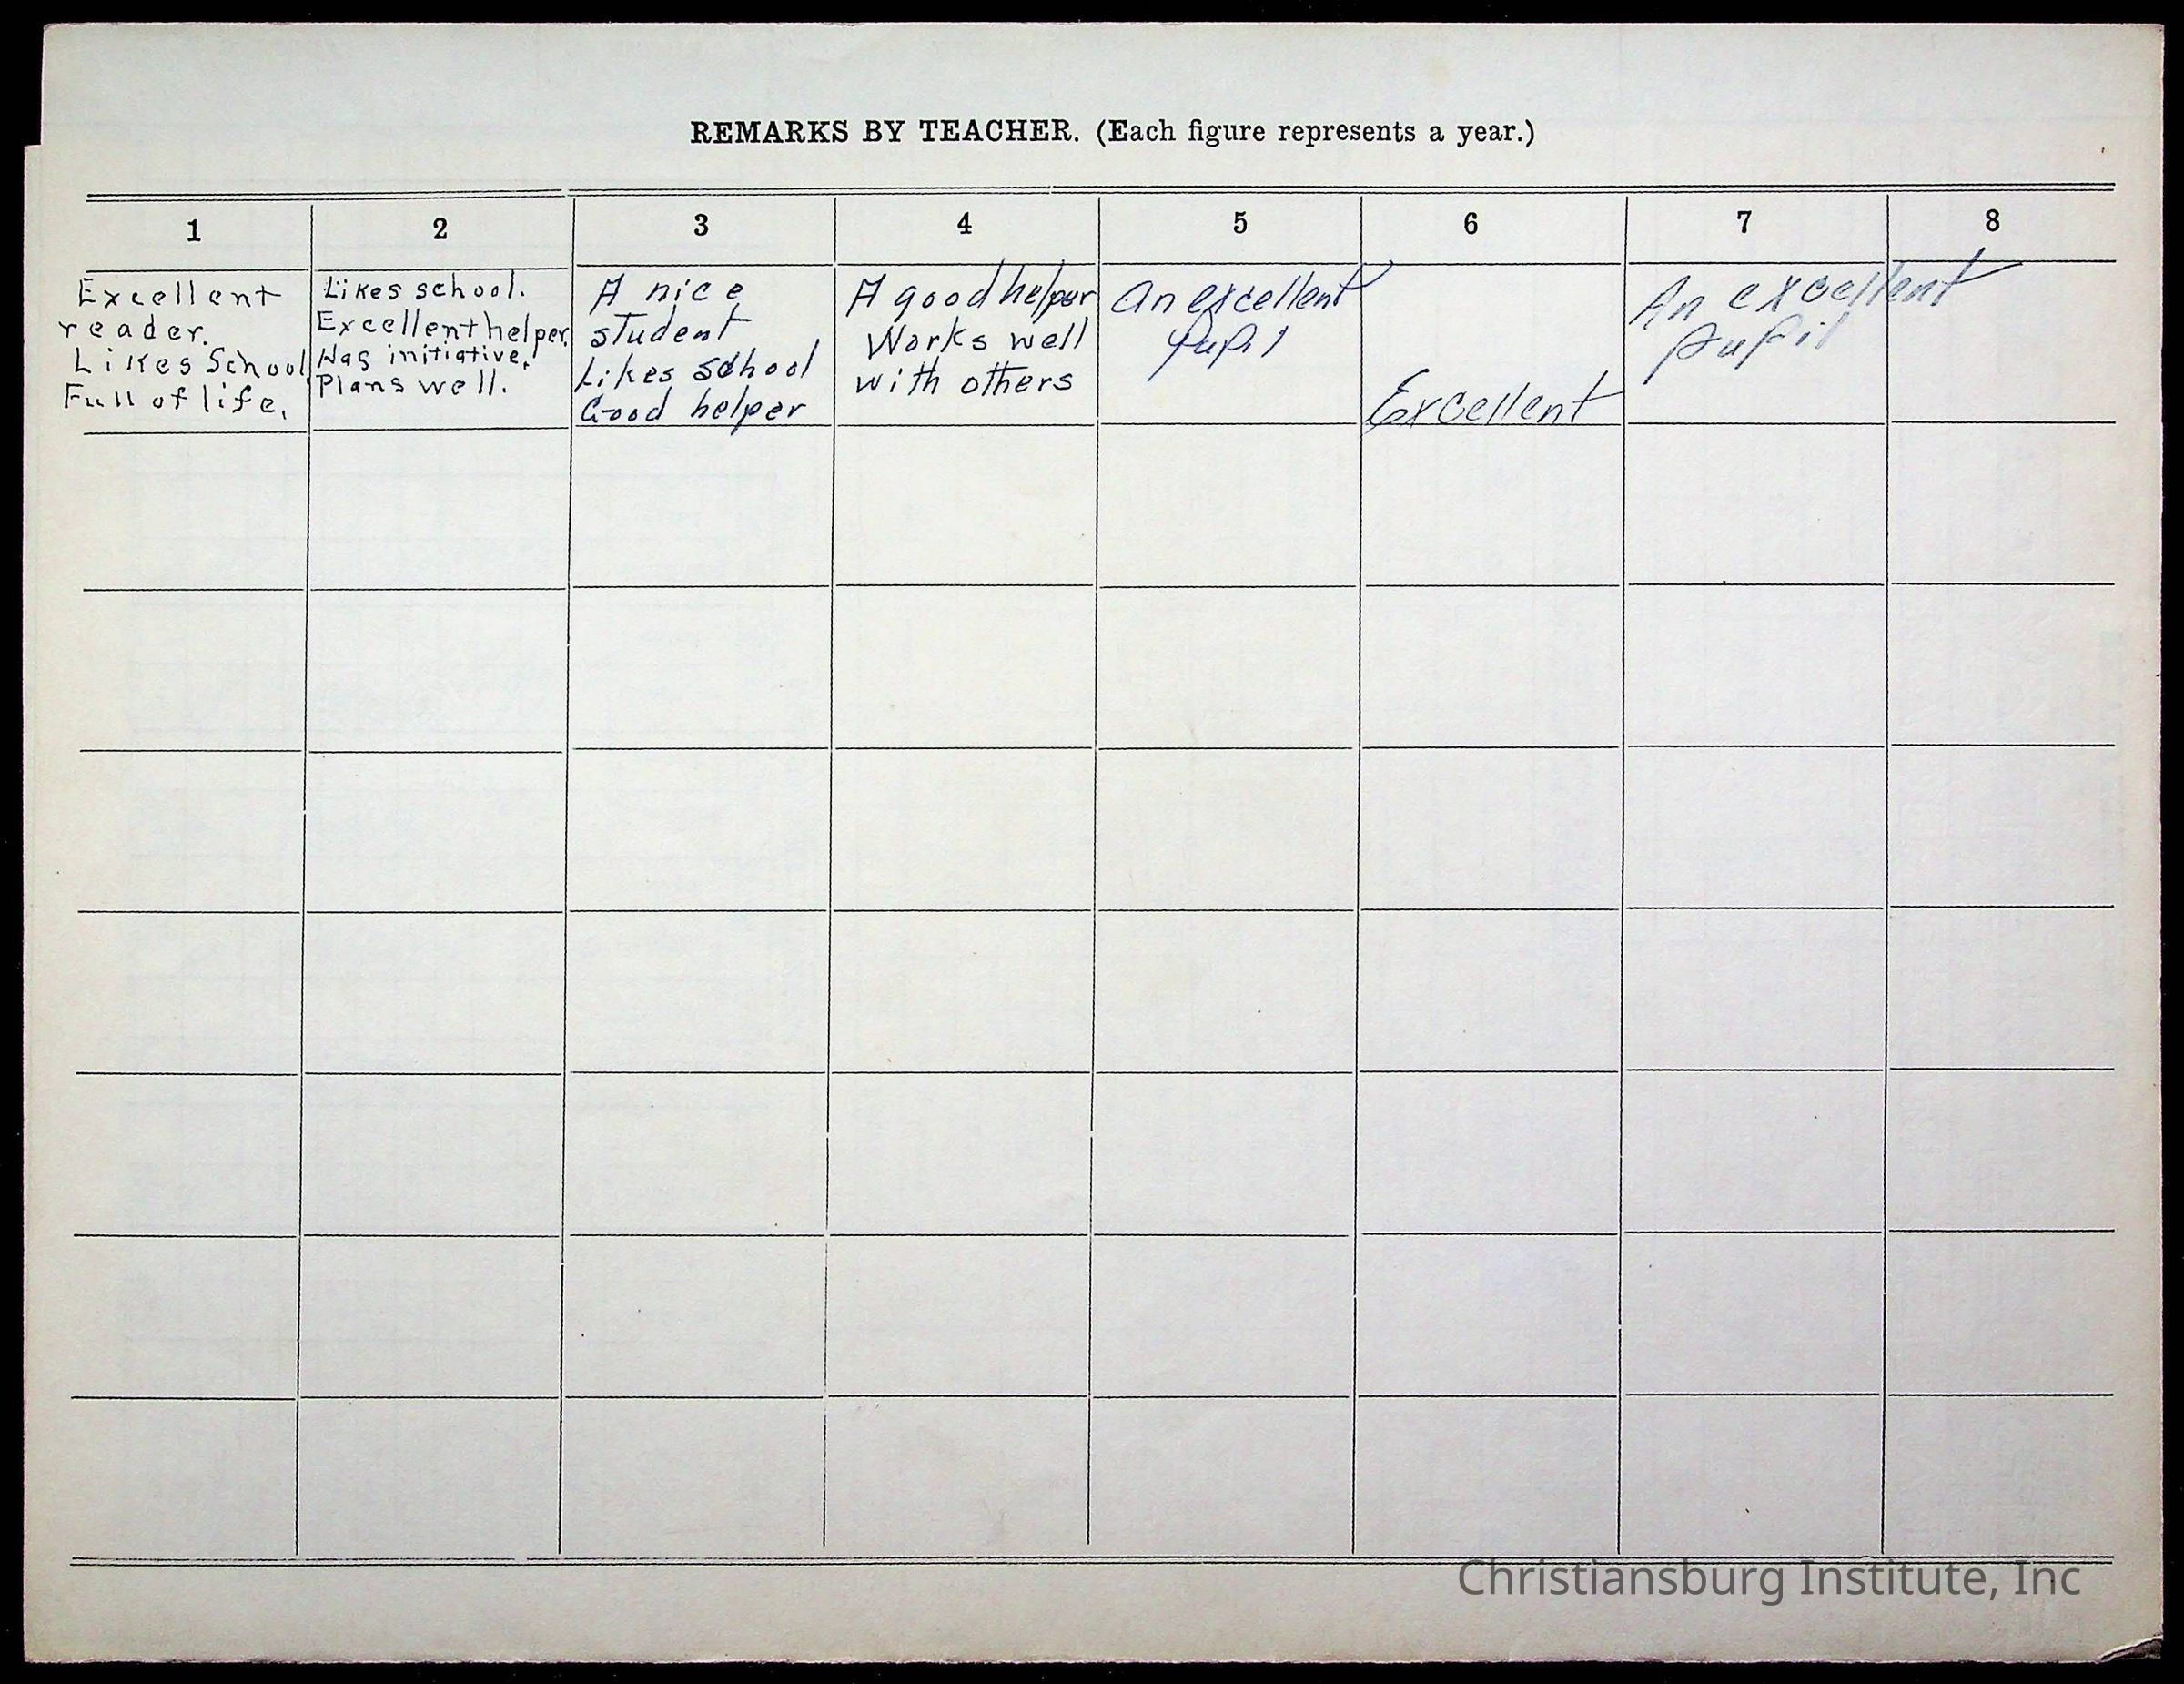 REMARKS BY TEACHER. (Each figure represents a year.)
1 2 3 4 5 6 7 8
Excellent
reader.
Likes School
Full of life.
Likes school.
Excellent helper.
Has initiative.
Plans well.
A nice
student
Likes school
Good helper
A good helper
Works well
with others
An excellent
pupil
Excellent
An excellent
pupil
Christiansburg Institute, Inc